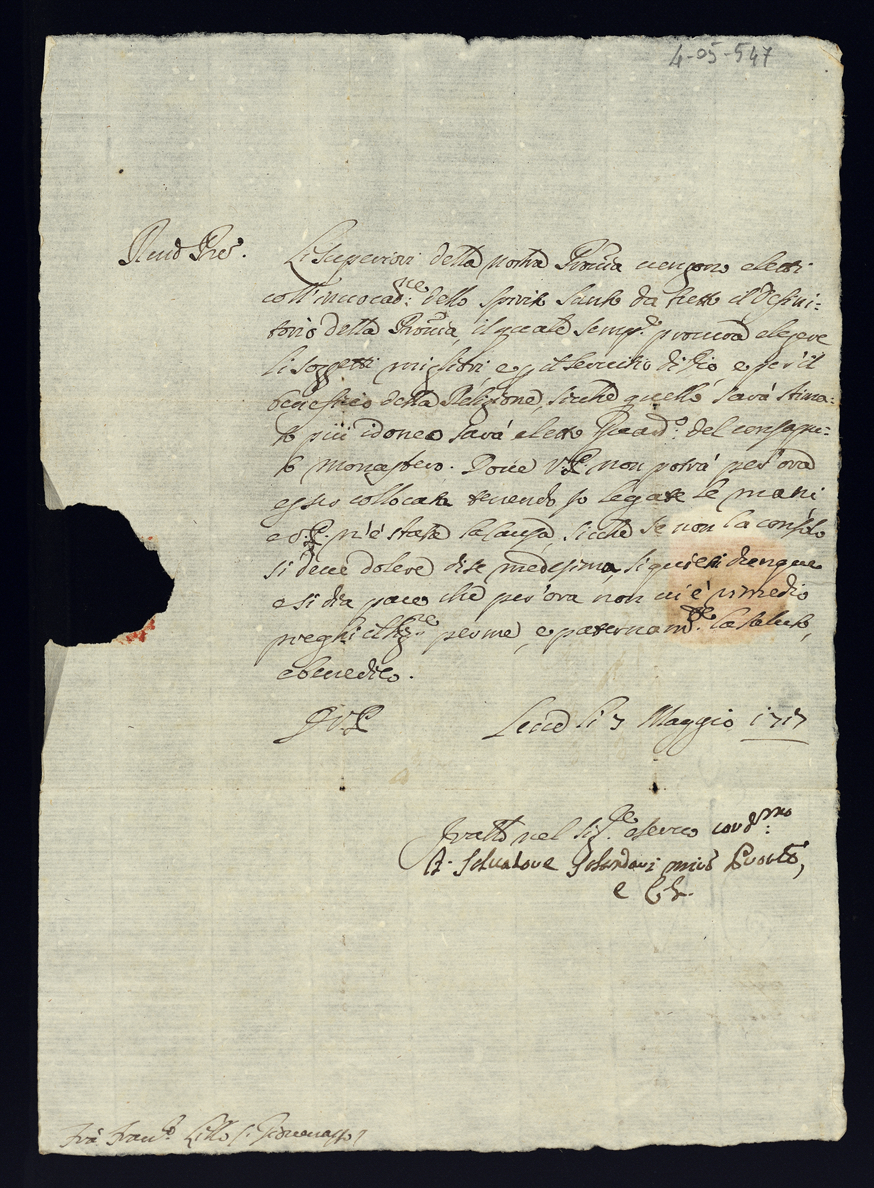 4-05-547
Rend Pre.
Li superiori della nostra Proũia uengono eletti
coll'inuocadne: dello Spirito Santo da tutto il Defini-
torio della Proũia, il quale sempre procura elegere
li soggetti migliori e p il seruitio di Dio e per il
beneficio della Religione, sicche quello sarà stima-
to più idoneo sarà eletto Guardo: del consapu-
to monastero. Doue V.P. non potrà per'ora
esser collocata tenendo io legate le mani
e V.P. n'è stata la causa, sicche se non la consolo
si deue dolere di se medesima, si quieti dunque
e si dia pace che per'ora non ui è rimedio
preghi il Sigre per me, e paternamte: la saluto,
e benedico.
D V.P.
Lecce li 7 Maggio 1717
Fratto nel Sigre e seruo cordmo:
fr. Saluatore mino Proule,
e
Frà Franco Lillo Giouenazzo